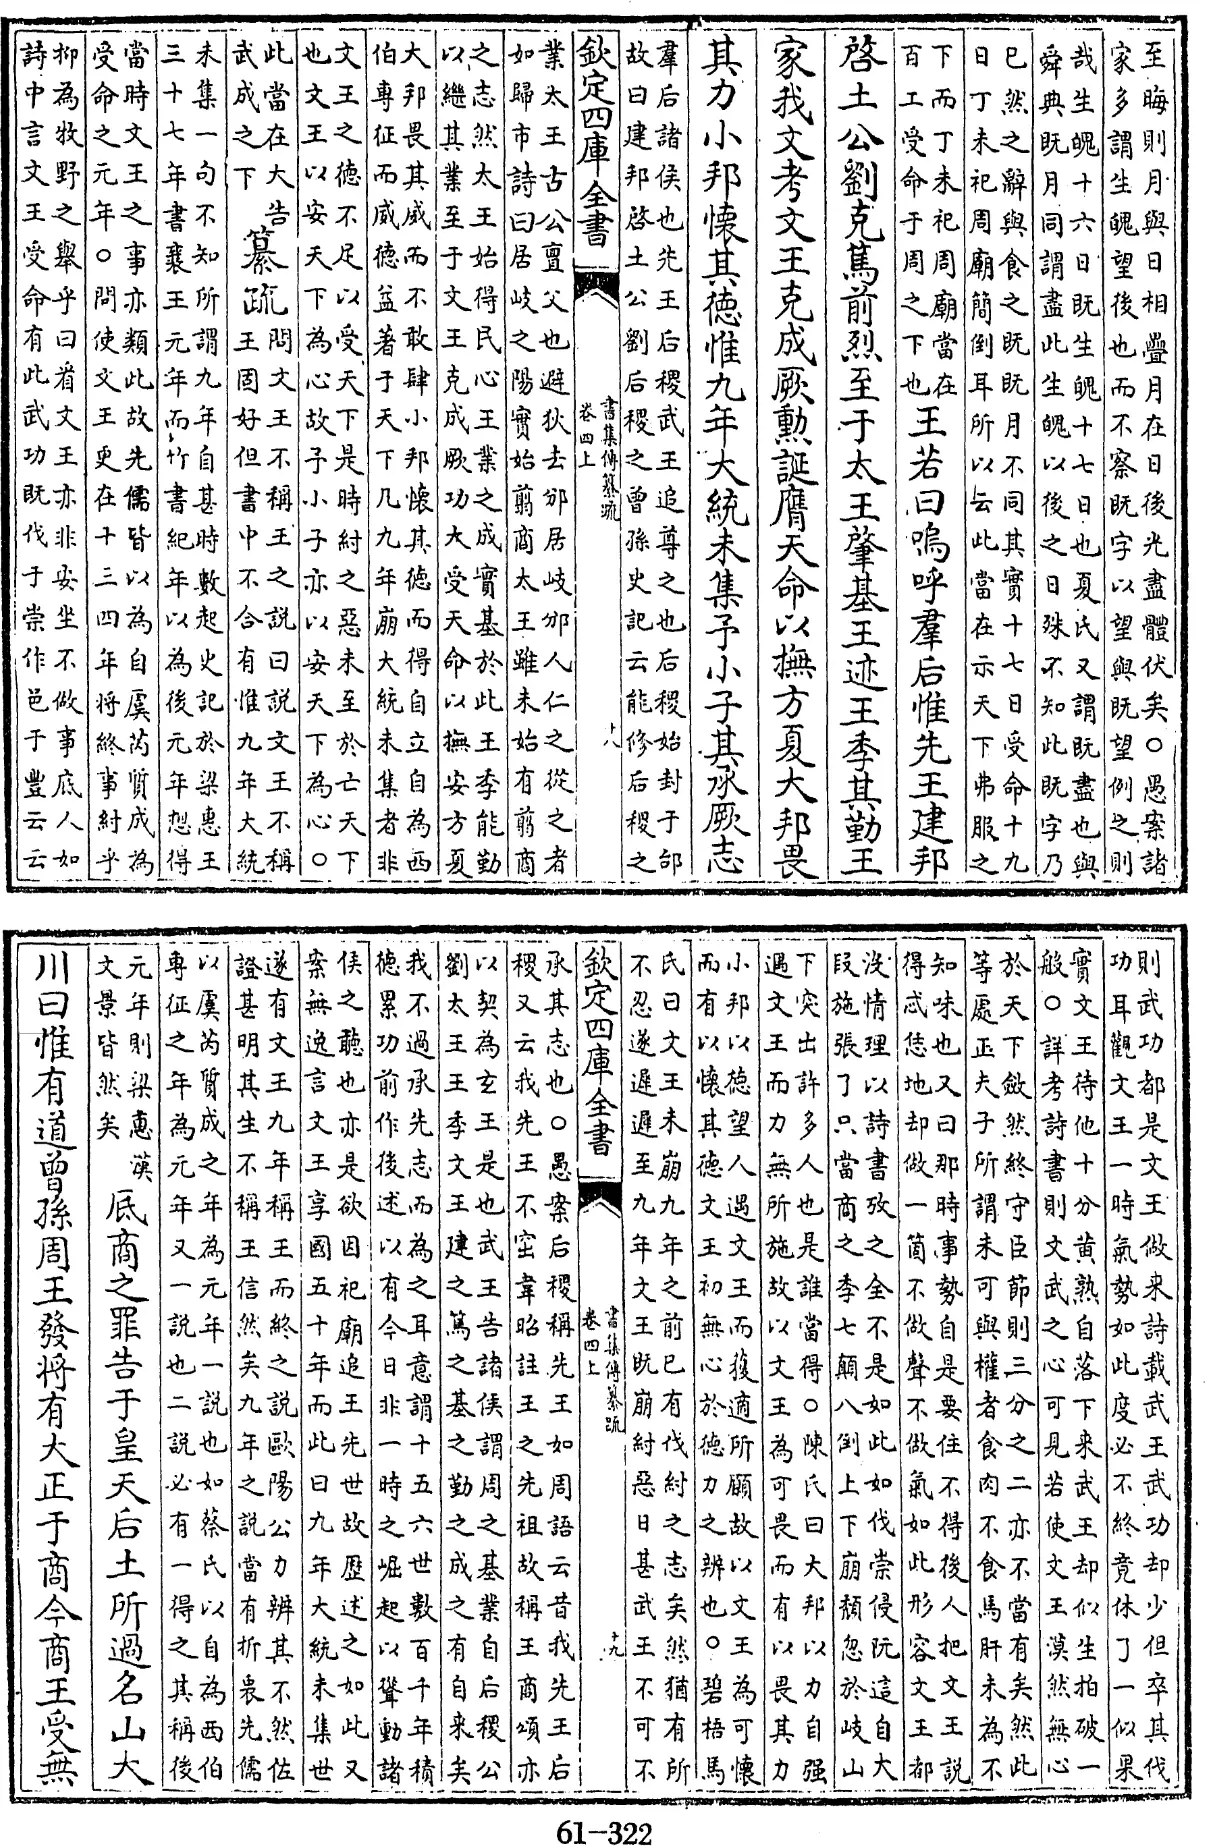 至晦則月與日相疊月在日後光盡體伏矣○愚案諸
家多謂生魄望後也而不察既字以望與既望例之則
哉生魄十六日既生魄十七日也夏氏又謂既盡也與
舜典既月同謂盡此生魄以後之日殊不知此既字乃
已然之辭與食之既既月不同其實十七日受命十九
日丁未祀周廟簡倒耳所以云此當在示天下弗服之
下而丁未祀周廟當在
百工受命于周之下也
王若曰嗚呼羣后惟先王建邦
啓土公劉克篤前烈至于太王肇基王迹王季其勤王
家我文考文王克成厥勲誕膺天命以撫方夏大邦畏
其力小邦懐其德惟九年大統未集予小子其承厥志
羣后諸侯也先王后稷武王追尊之也后稷始封于邰
故曰建邦啓土公劉后稷之曾孫史記云能修后稷之
欽定四庫全書
書集傳纂疏
卷四上
十八
業太王古公亶父也避狄去邠居岐邠人仁之從之者
如歸市詩曰居岐之陽實始翦商太王雖未始有翦商
之志然太王始得民心王業之成實基於此王季能勤
以繼其業至于文王克成厥功大受天命以撫安方夏
大邦畏其威而不敢肆小邦懐其德而得自立自為西
伯專征而威德益著于天下凡九年崩大統未集者非
文王之德不足以受天下是時紂之惡未至於亡天下
也文王以安天下為心故予小子亦以安天下為心○
此當在大告
武成之下
纂疏
問文王不稱王之說曰說文王不稱
王固好但書中不合有惟九年大統
未集一句不知所謂九年自甚時數起史記於梁惠王
三十七年書襄王元年而竹書紀年以為後元年想得
當時文王之事亦類此故先儒皆以為自虞芮質成為
受命之元年○問使文王更在十三四年将終事紂乎
抑為牧野之舉乎曰看文王亦非安坐不做事底人如
詩中言文王受命有此武功既伐于崇作邑于豐云云
則武功都是文王做来詩載武王武功却少但卒其伐
功耳觀文王一時氣勢如此度必不終竟休了一似果
實文王待他十分黄熟自落下来武王却似生拍破一
般○詳考詩書則文武之心可見若使文王漠然無心
於天下斂然終守臣節則三分之二亦不當有矣然此
等處正夫子所謂未可與權者食肉不食馬肝未為不
知味也又曰那時事勢自是要住不得後人把文王說
得忒恁地却做一箇不做聲不做氣如此形容文王都
沒情理以詩書攷之全不是如此如伐崇侵阮這自大
段施張了只當商之季七顛八倒上下崩頹忽於岐山
下突出許多人也是誰當得○陳氏曰大邦以力自强
遇文王而力無所施故以文王為可畏而有以畏其力
小邦以德望人遇文王而獲適所願故以文王為可懐
而有以懐其德文王初無心於德力之辨也○碧梧馬
氏曰文王未崩九年之前已有伐紂之志矣然猶有所
不忍遂遲遲至九年文王既崩紂惡日甚武王不可不
欽定四庫全書
書集傳纂疏
卷四上
十九
承其志也○愚案后稷稱先王如周語云昔我先王后
稷又云我先王不窋韋昭註王之先祖故稱王商頌亦
以契為玄王是也武王告諸侯謂周之基業自后稷公
劉太王王季文王建之篤之基之勤之成之有自来矣
我不過承先志而為之耳意謂十五六世數百千年積
德累功前作後述以有今日非一時之崛起以聳動諸
侯之聽也亦是欲因祀廟追王先世故歷述之如此又
案無逸言文王享國五十年而此曰九年大統未集世
遂有文王九年稱王而終之説歐陽公力辨其不然佐
證甚明其生不稱王信然矣九年之説當有折衷先儒
以虞芮質成之年為元年一説也如蔡氏以自為西伯
專征之年為元年又一説也二説必有一得之其稱後
元年則梁惠漢
文景皆然矣
厎商之罪告于皇天后土所過名山大
川曰惟有道曾孫周王發将有大正于商今商王受無
61-322